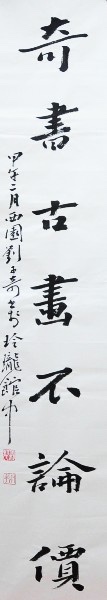 奇書古畫不論價
甲午二月西園劉子奇書於玲瓏館中